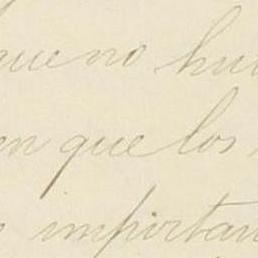 que no hu
en que los
importan